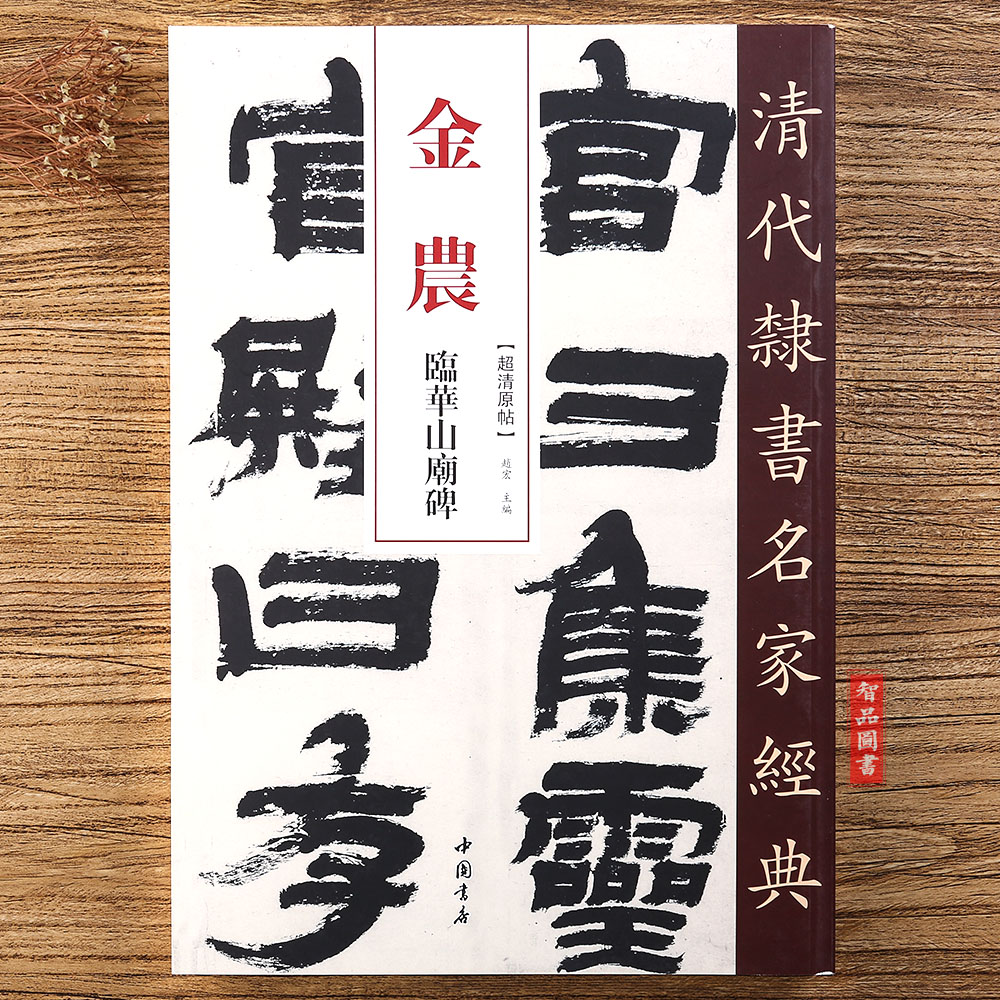 清代隸書名家經典
宮曰集靈
宮殿曰存
【超清原帖】
趙宏 主編
金農
臨華山廟碑
中国書店
智品圖書